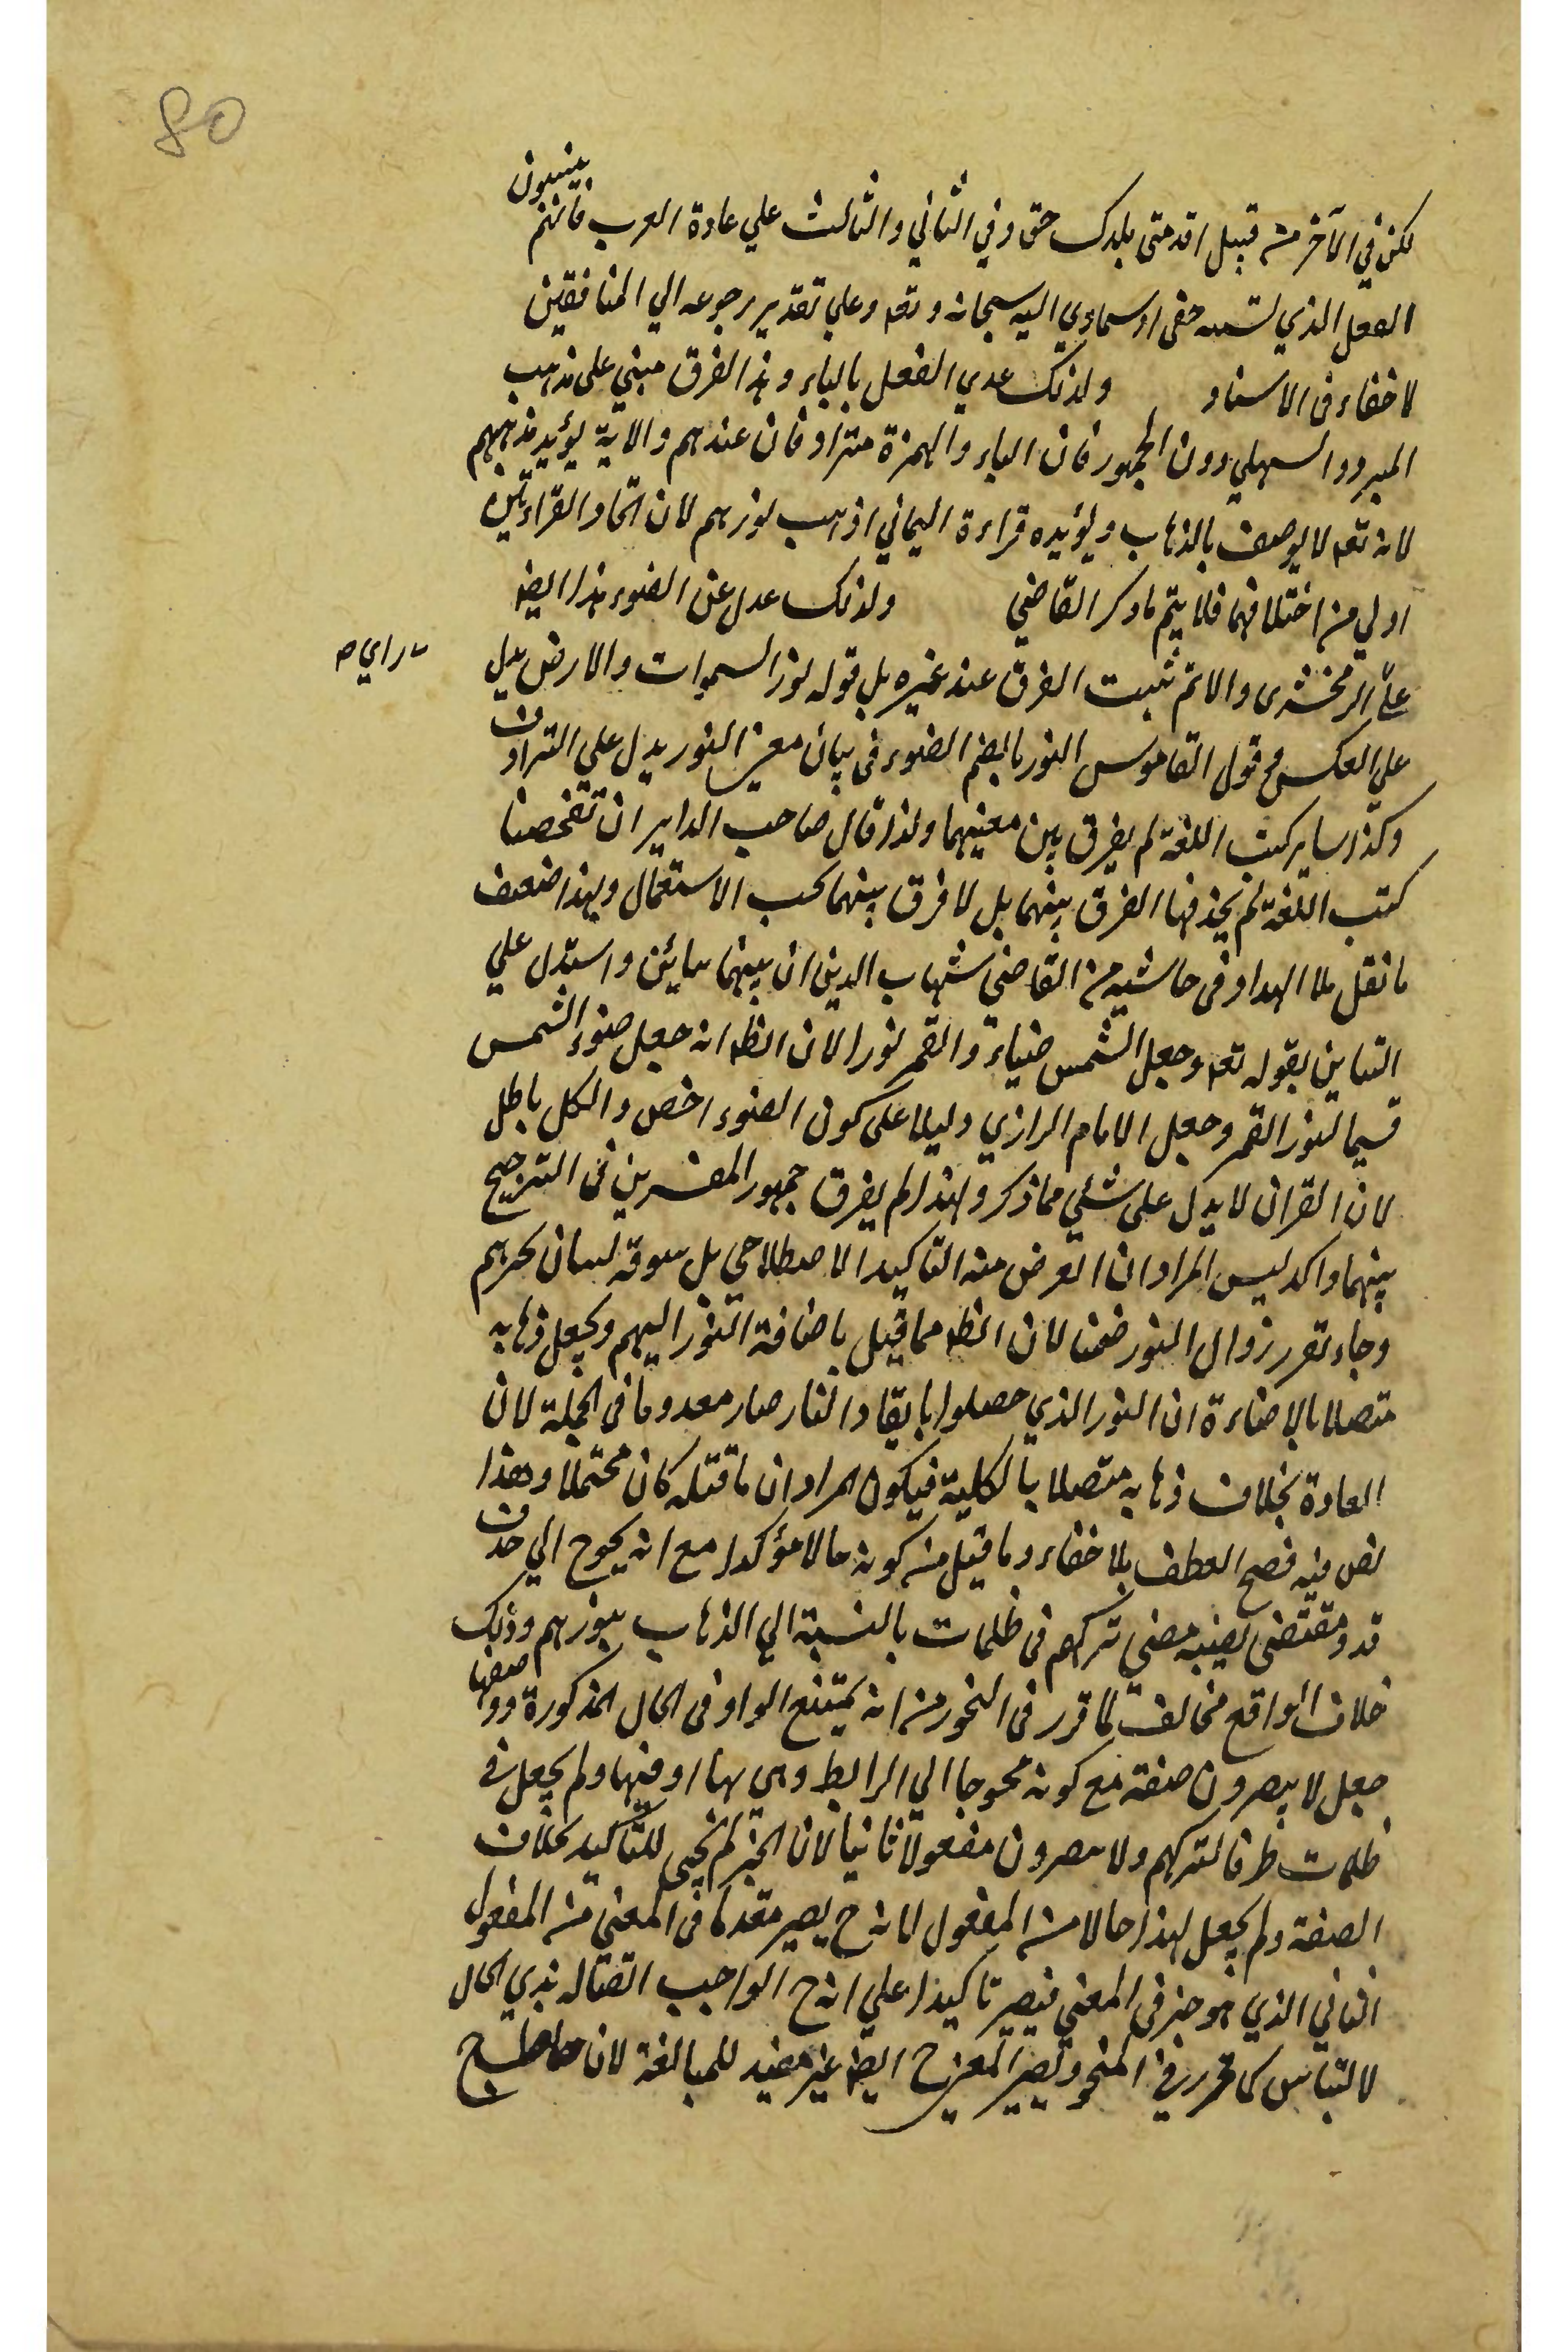 80
لكن في الآخر من قبيل اقدمتي بلدك حق وفي الثاني والثالث علي عادة العرب فانهم ينسبون
الفعل الذي لسببه خفي او سماوي اليه سبحانه وتعه وعلي تقدير رجوعه الي المنافقين
لا خفاء في الاسناد ولذلك عدي الفعل بالباء وهذا الفرق مبني على مذهب
المبرد والسهيلي دون الجمهور فان الباء والهمزة مترادفان عندهم والاية يؤيد مذهبهم
لانه تعه لا يوصف بالذهاب ويؤيده قراءة اليماني اذهب نورهم لان اتحاد القراءتين
اولي من اختلافهما فلا يتم ما ذكر القاضي ولذلك عدل عن الضوء هذا ايضا
راي ص
علي الزمخشري والا لم تثبت الفرق عند غيره بل قوله نور السموات والارض يدل
علي العكس وقول القاموس النور بالضم الضوء في بيان معنى النور يدل علي الترادف
وكذا ساير كتب اللغة لم يفرق بين معنيهما ولذا قال صاحب الداير ان تفحصنا
كتب اللغة لم يجد فيها الفرق بينهما بل لا فرق بينهما بحسب الاستعمال وبهذا ضعف
ما نقل ملا الهداد في حاشيته من القاضي شهاب الدين ان بينهما تباين واستدل علي
التباين بقوله تعه وجعل الشمس ضياء والقمر نورا لان الظ انه جعل ضوء الشمس
قسيما لنور القمر وجعل الامام الرازي دليلا على كون الضوء اخص والكل باطل
لان القران لا يدل على شئي مما ذكر ولهذا لم يفرق جمهور المفسرين في الترجيح
بينهما واكد ليس المراد ان الغرض منه التاكيد الاصطلاحي بل سوقه لبيان تحيرهم
وجاء تقرر زوال النور ضمنا لان الظ مما قيل باضافة النور اليهم وبجعل ذهابه
متصلا بالاضاءة ان النور الذي حصلوا بايقاد النار صار معدوما في الجملة لان
العادة بخلاف ذهابه متصلا بالكلية فيكون المراد ان ما قبله كان محتملا وهذا
نص فيه فصح العطف بلا خفاء وما قيل من كونه حالا مؤكدا مع انه يحوج الي حذف
قد ومقتضى مضي تركهم في ظلمات بالنسبة الي الذهاب بنورهم وذلك
خلاف الواقع مخالف لما قرر في النحو من انه يمتنع الواو في الحال المذكورة ووصفها
جعل لا يبصرون صفة مع كونه محوجا الي الرابط وهي بها او فيها ولم يجعل في
ظلمات ظرفا لتركهم ولا يبصرون مفعولا ثانيا لان الخبر لم يجئ للتاكيد بخلاف
الصفة ولم يجعل لهذا حالا من المفعول لانه ح يصير مقدما في المعني من المفعول
الثاني الذي هو خبر في المعني فيصير تاكيدا علي انه ح الواجب اتصاله بذي الحال
لالتباس كما قرر في النحو ويصير المعني ح ايضا غير مفيد للمبالغة لان